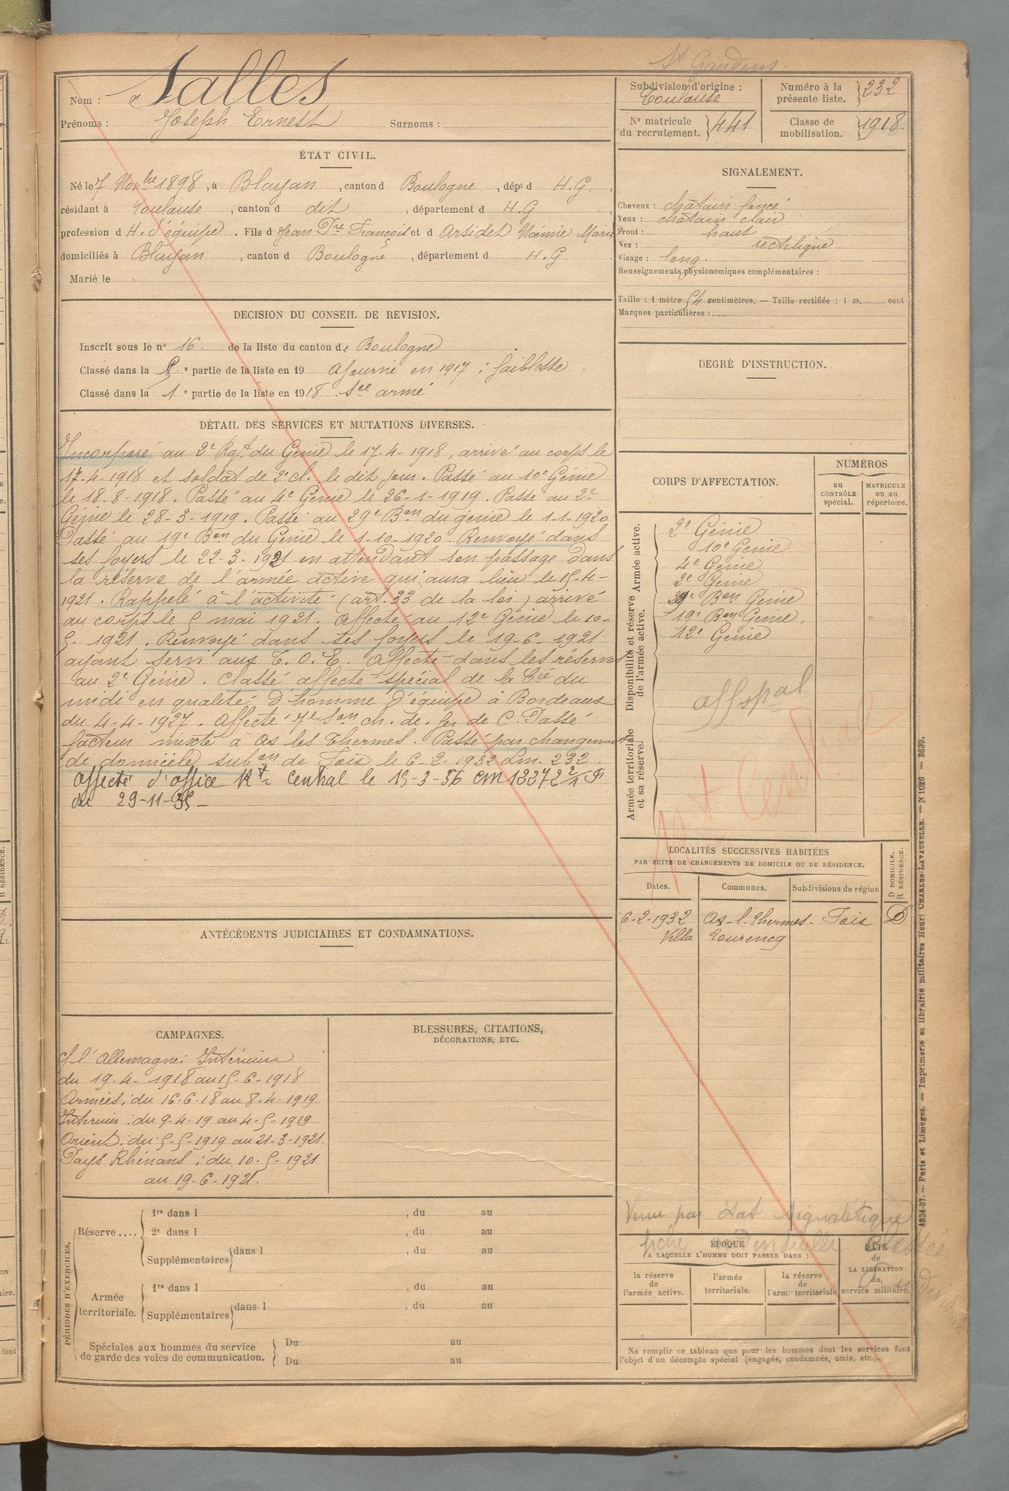 St Gaudens.
Nom : Salles
Prénoms : Joseph Ernest Surnoms :
Subdivision d'origine : Toulouse
Numéro à la présente liste. 232
N° matricule du recrutement. 441
Classe de mobilisation. 1918.
ÉTAT CIVIL.
Né le 7 Novbre 1898, à Blajan, canton d Boulogne, dépt d H.G.,
résidant à Toulouse, canton d dit, département d H.G.
profession d H. d'équipe. Fils d Jean Fre François et d Arsidet Noémie Marie
domiciliés à Blajan, canton d Boulogne, département d H.G.
Marié le
DÉCISION DU CONSEIL DE REVISION.
Inscrit sous le n° 16 de la liste du canton de Boulogne
Classé dans la 5e partie de la liste en 19 ajourné en 1917 : faiblesse.
Classé dans la 1e partie de la liste en 1918 Sce armé
DÉTAIL DES SERVICES ET MUTATIONS DIVERSES.
Incorporé au 2e Rgt du Génie le 17-4-1918, arrivé au corps le
17-4-1918 et soldat de 2e cl. le dit jour. Passé au 10e Génie
le 18-8-1918. Passé au 4e Génie le 26-1-1919. Passé au 2e
Génie le 28-3-1919. Passé au 29e Bon du génie le 1-1-1920
Passé au 19e Bon du Génie le 1-10-1920. Renvoyé dans
ses foyers le 22-3-1921 en attendant son passage dans
la réserve de l'armée active qui aura lieu le 15-4-
1921. Rappelé à l'activité (art. 33 de la loi) arrivé
au corps le 5 mai 1921. Affecté au 12e Génie le 10-
5-1921. Renvoyé dans ses foyers le 19-6-1921
ayant servi aux T.O.E. Affecté dans les réserves
au 2e Génie. Classé affecté spécial de la Cie du
midi en qualité d'homme d'équipe à Bordeaux
du 4-4-1927. Affecté 7e Son ch. de fer de C. Passé
facteur mixte à Ax les Thermes. Passé par changement
de domicile subon de Foix le 6-2-1932 Lm. 232.
Affecté d'office Mt Central le 15-2-36 CM 13372 2/1 F
du 29-11-35-
ANTÉCÉDENTS JUDICIAIRES ET CONDAMNATIONS.
CAMPAGNES.
C/ l'Allemagne: Intérieur
du 19-4-1918 au 15-6-1918
Armées: du 16-6-18 au 8-4-1919
Intérieur: du 9-4-19 au 4-5-1919
Orient: du 5-5-1919 au 21-3-1921
Pays Rhénans: du 10-5-1921
au 19-6-1921.
BLESSURES, CITATIONS,
DÉCORATIONS, ETC.
PÉRIODES D'EXERCICES.
Réserve....
1re dans l , du au
2e dans l , du au
Supplémentaires dans l , du au
Armée territoriale.
1re dans l , du au
Supplémentaires dans l , du au
Spéciales aux hommes du service
de garde des voies de communication.
Du au
Du au
SIGNALEMENT.
Cheveux : châtain foncé
Yeux : châtain clair
Front : haut
Nez : rectiligne
Visage : long
Renseignements physionomiques complémentaires :
Taille : 1 mètre 54 centimètres. — Taille rectifiée : 1 m. cent
Marques particulières :
DEGRÉ D'INSTRUCTION.
CORPS D'AFFECTATION.
NUMÉROS
au CONTRÔLE spécial.
MATRICULE ou au répertoire.
Disponibilité et réserve de l'armée active. Armée active.
2e Génie
10e Génie
4e Génie
2e Génie
29e Bon Génie
19e Bon Génie.
12e Génie
aff spal
Armée territoriale et sa réserve.
Mt Central
LOCALITÉS SUCCESSIVES HABITÉES
PAR SUITE DE CHANGEMENTS DE DOMICILE OU DE RÉSIDENCE.
Dates.
Communes.
Subdivisions de région
D DOMICILE. R RÉSIDENCE.
6-2-1932 Ax-l-Thermes- Foix D
Villa Tourencq
Venu par état signalétique
ÉPOQUE
A LAQUELLE L'HOMME DOIT PASSER DANS :
la réserve de l'armée active.
l'armée territoriale.
la réserve de l'arm. territoriale
DATE de LA LIBÉRATION du service militaire.
Ne remplir ce tableau que pour les hommes dont les services font
l'objet d'un décompte spécial (engagés, condamnés, omis, etc.).
4234-37. — Paris et Limoges. — Imprimerie et librairie militaires Henri CHARLES-LAVAUZELLE. — N 1026 — 3639.